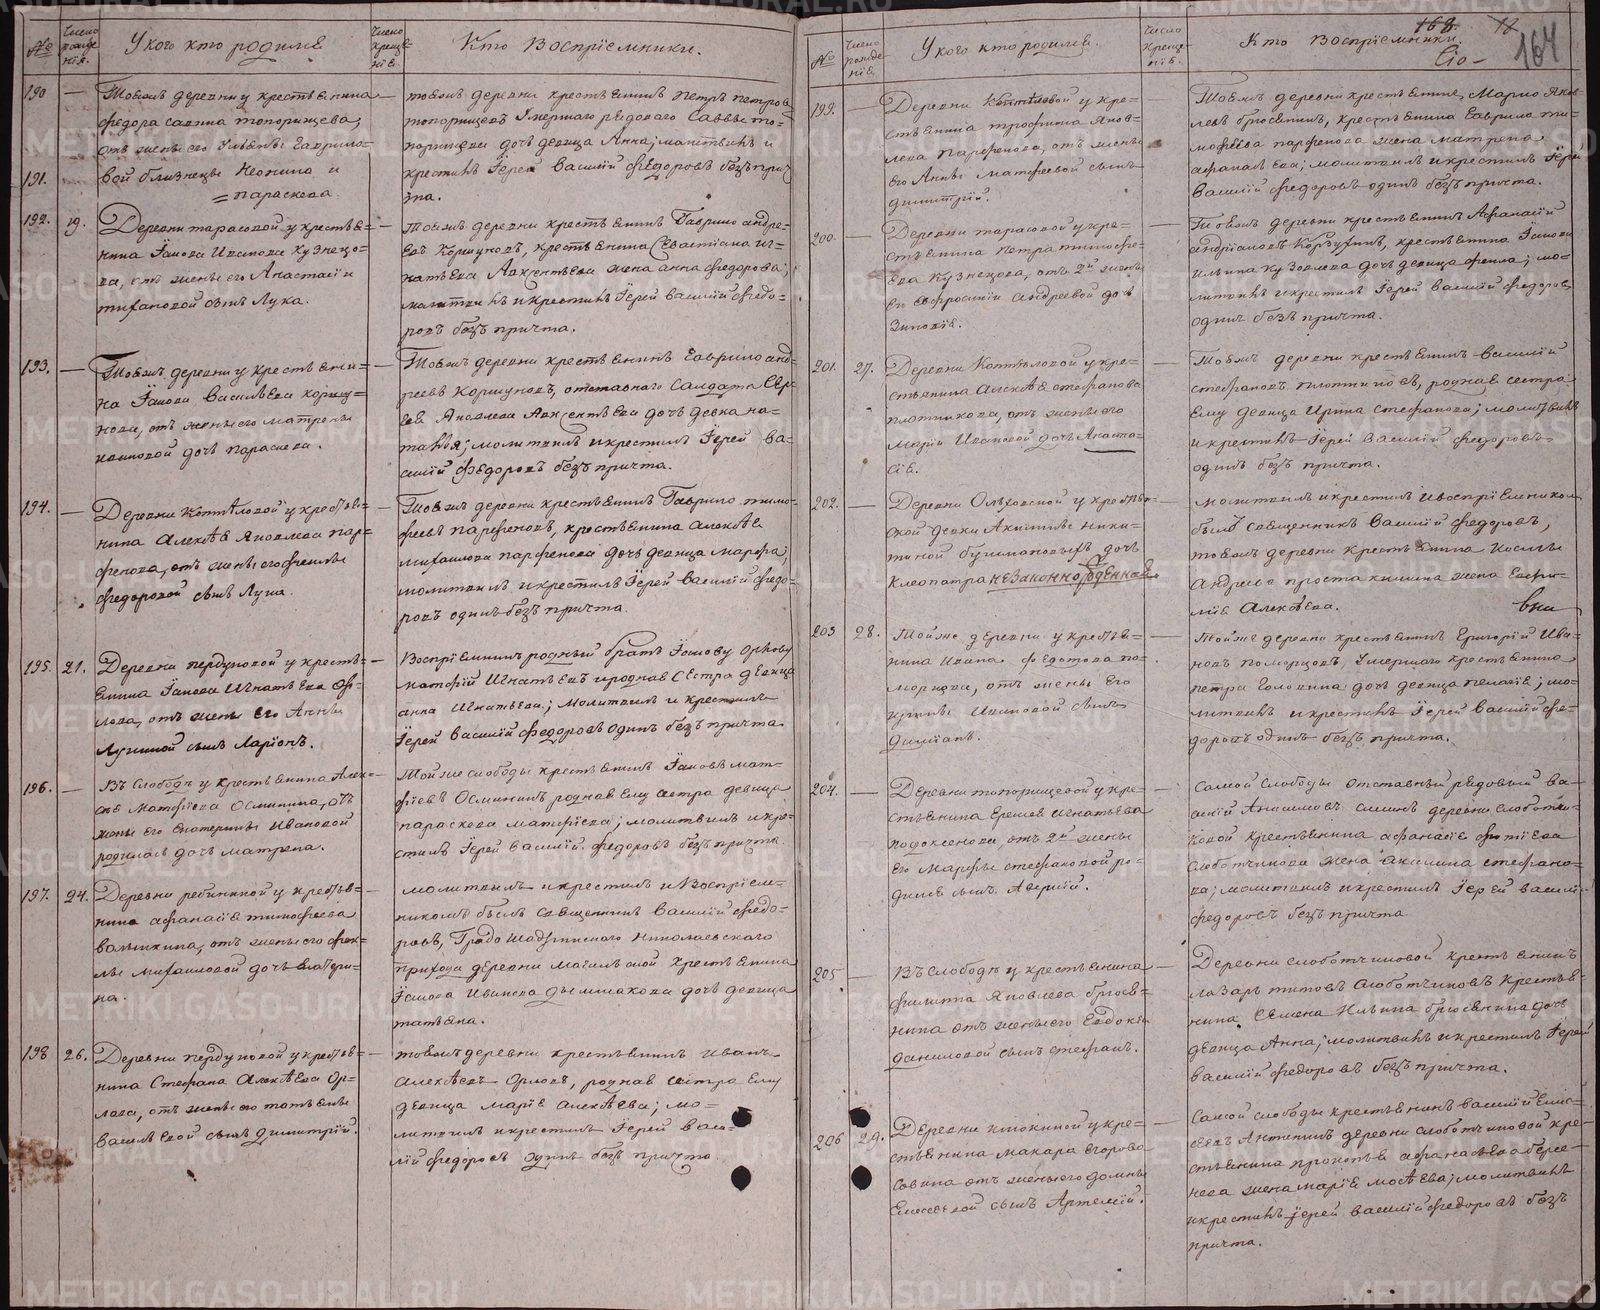 №
Число рожденія.
У кого кто родился
Число крещенія.
Кто воспріемники.
190 — Тоежъ деревни у крестьянина —
федора савина топорищева,
отъ жены его Ульяны Гаврило=
191. вой близнецы Неонила и
= параскева.
тоежъ деревни крестьянинъ петръ петровъ
топорищевъ Умершаго рядоваго Саввы то=
порищева дочь девица Анна; молитвилъ и
крестилъ Іерей Василій Федоровъ безъ прич
та.
192. 19. Деревни тарасовой у крестья=
нина Іакова Иванова Кузнецо=
ва, отъ жены его Анастасіи
сынъ Лука.
Тоежъ деревни крестьянинъ Гаврило андре=
евъ Коршуновъ, крестьянина Севастіана иг=
натьева Авксентьева жена анна федорова;
молитвилъ и крестилъ Іерей Василій Федо=
ровъ безъ причта.
193. — Тоежъ деревни у крестьяни=
на Іакова Васильева коршу=
нова, отъ жены его матрены
дочь параскева.
Тоежъ деревни крестьянинъ Гаврило анд=
реевъ Коршуновъ, отставнаго Салдата Сер=
гея Яковлева Авксентьева дочь девка на=
талья; молитвилъ и крестилъ Іерей Ва=
силій Федоровъ безъ причта.
194. — Деревни Коптяловой у крестья=
нина Алексея Яковлева пар=
фенова, отъ жены его
федоровой сынъ Лука.
Тоежъ деревни крестьянинъ Гаврило тимо=
феевъ парфеновъ, крестьянина алексея
михаилова парфенова дочь девица марфа;
молитвилъ и крестилъ Іерей Василій Федо=
ровъ одинъ безъ причта.
195. 21. Деревни пердуновой у кресть=
янина Іакова Игнатьева Ор=
лова, отъ жены его Анны
Лукиной сынъ Ларіонъ.
Воспріемникъ родный братъ Іакову Орлову
матфій Игнатьевъ и родная Сестра девица
анна Игнатьева; молитвилъ и крестилъ
Іерей Василій Федоровъ одинъ безъ причта
196. — Въ Слободѣ у крестьянина Алек=
сея Матфіева Осминина, отъ
жены его Екатерины Ивановой
родилась дочь матрена.
Тойже слободы крестьянинъ Іаковъ мат=
фіевъ Осмининъ родная ему сестра девица
параскева матфіева; молитвилъ и кре=
стилъ Іерей Василій Федоровъ безъ причта.
197. 24. Деревни у крестья=
нина афанасія тимофеева
отъ жены его фек=
лы михаиловой дочь екатери=
на.
молитвилъ и крестилъ и Воспріем=
никомъ былъ священникъ Василій федо=
ровъ, Градо Шадринскаго Николаевскаго
прихода деревни крестьянина
Іакова Иванова дочь девица
татьяна.
198 26. Деревни пердуновой у крестья=
нина Стефана Алексеева Ор=
лова, отъ жены его татьяны
Васильевой сынъ Димитрій.
тоежъ деревни крестьянинъ иванъ
алексеевъ Орловъ, родная сестра Ему
девица марія алексеева; мо=
литвилъ и крестилъ Іерей Васи=
лій Федоровъ одинъ безъ причта.
№
Число рожденія.
У кого кто родился.
Число крещенія.
Кто воспріемники.
168 164
199. Деревни Коптяловой у кре=
стьянина трофима Яков=
лева Парфенова, отъ жены
его Анны Матфеевой сынъ
Димитрій.
Тоежъ деревни крестьянинъ, Марко Яков=
левъ брюсянинъ, крестьянина Гаврила ти=
мофеева парфенова жена матрена
афанасьева; молитвилъ и крестилъ Іерей
Василій Федоровъ одинъ безъ причта.
200. Деревни тарасовой у кре=
стьянина петра тимофе=
ева Кузнецова, отъ 2й жены
его Евфросиніи андреевой дочь
Зиновія.
Тоежъ деревни крестьянинъ Афанасій
андріановъ крестьянина Іакова
ильина дочь девица фекла; мо=
литвилъ и крестилъ Іерей Василій Федоровъ
одинъ безъ причта.
201. 27. Деревни Коптяловой у кре=
стьянина Алексея стефанова
плотникова, отъ жены его
Маріи Ивановой дочь Анаста=
сія.
Тоежъ деревни крестьянинъ Василій
стефановъ плотниковъ, родная сестра
Ему девица Ирина Стефанова; молитвилъ
и крестилъ Іерей Василій Федоровъ
одинъ безъ причта.
202. — Деревни Ольховской у крестьян=
ской девки Акилины ники=
тиной дочь
Клеопатра незаконнорожденная.
молитвилъ и крестилъ и воспріемникомъ
былъ священникъ Василій Федоровъ,
тоежъ деревни крестьянина Космы
Андреева жена Евфи=
мія Алексеева.
203 28. Тойже деревни у крестья=
нина Ивана Федотова по=
морцова, отъ жены Его
Ивановой сынъ
Диміанъ.
Тойже деревни крестьянинъ Григорій Ива=
новъ поморцовъ, Умершаго крестьянина
петра дочь девица пелагія; мо=
литвилъ и крестилъ Іерей Василій фе=
доровъ одинъ безъ причта.
204. — Деревни топорищевой у кре=
стьянина Еремея игнатьева
отъ 2й жены
его Марфы стефановой ро=
дился сынъ Аверкій.
Самой Слободы отставный рядовый ва=
силій Анисимовъ деревни слободчи=
ковой крестьянина афанасія фотіева
Слободчикова жена акилина стефано=
ва; молитвилъ и крестилъ Іерей Василій
Федоровъ безъ причта.
205 — Въ слободѣ у крестьянина
филиппа Яковлева брюся=
нина отъ жены его Евдокіи
даниловой сынъ стефанъ.
Деревни слоботчиковой крестьянинъ
лазарь титовъ слоботчиковъ крестья=
нина Семена Ильина брюсянина дочь
девица Анна; молитвилъ и крестилъ Іерей
Василій Федоровъ безъ причта.
206 29. Деревни у кре=
стьянина макара Егорова
Савина отъ жены его домны
Елисеевой сынъ Артемій.
Самой слободы крестьянинъ Василій Елис=
еевъ Антипинъ деревни слоботчиковой кре=
стьянина прокопья афанасьева
жена марія мосеева; молитвилъ
и крестилъ Іерей Василій Федоровъ безъ
причта.
METRIKI.GASO-URAL.RU